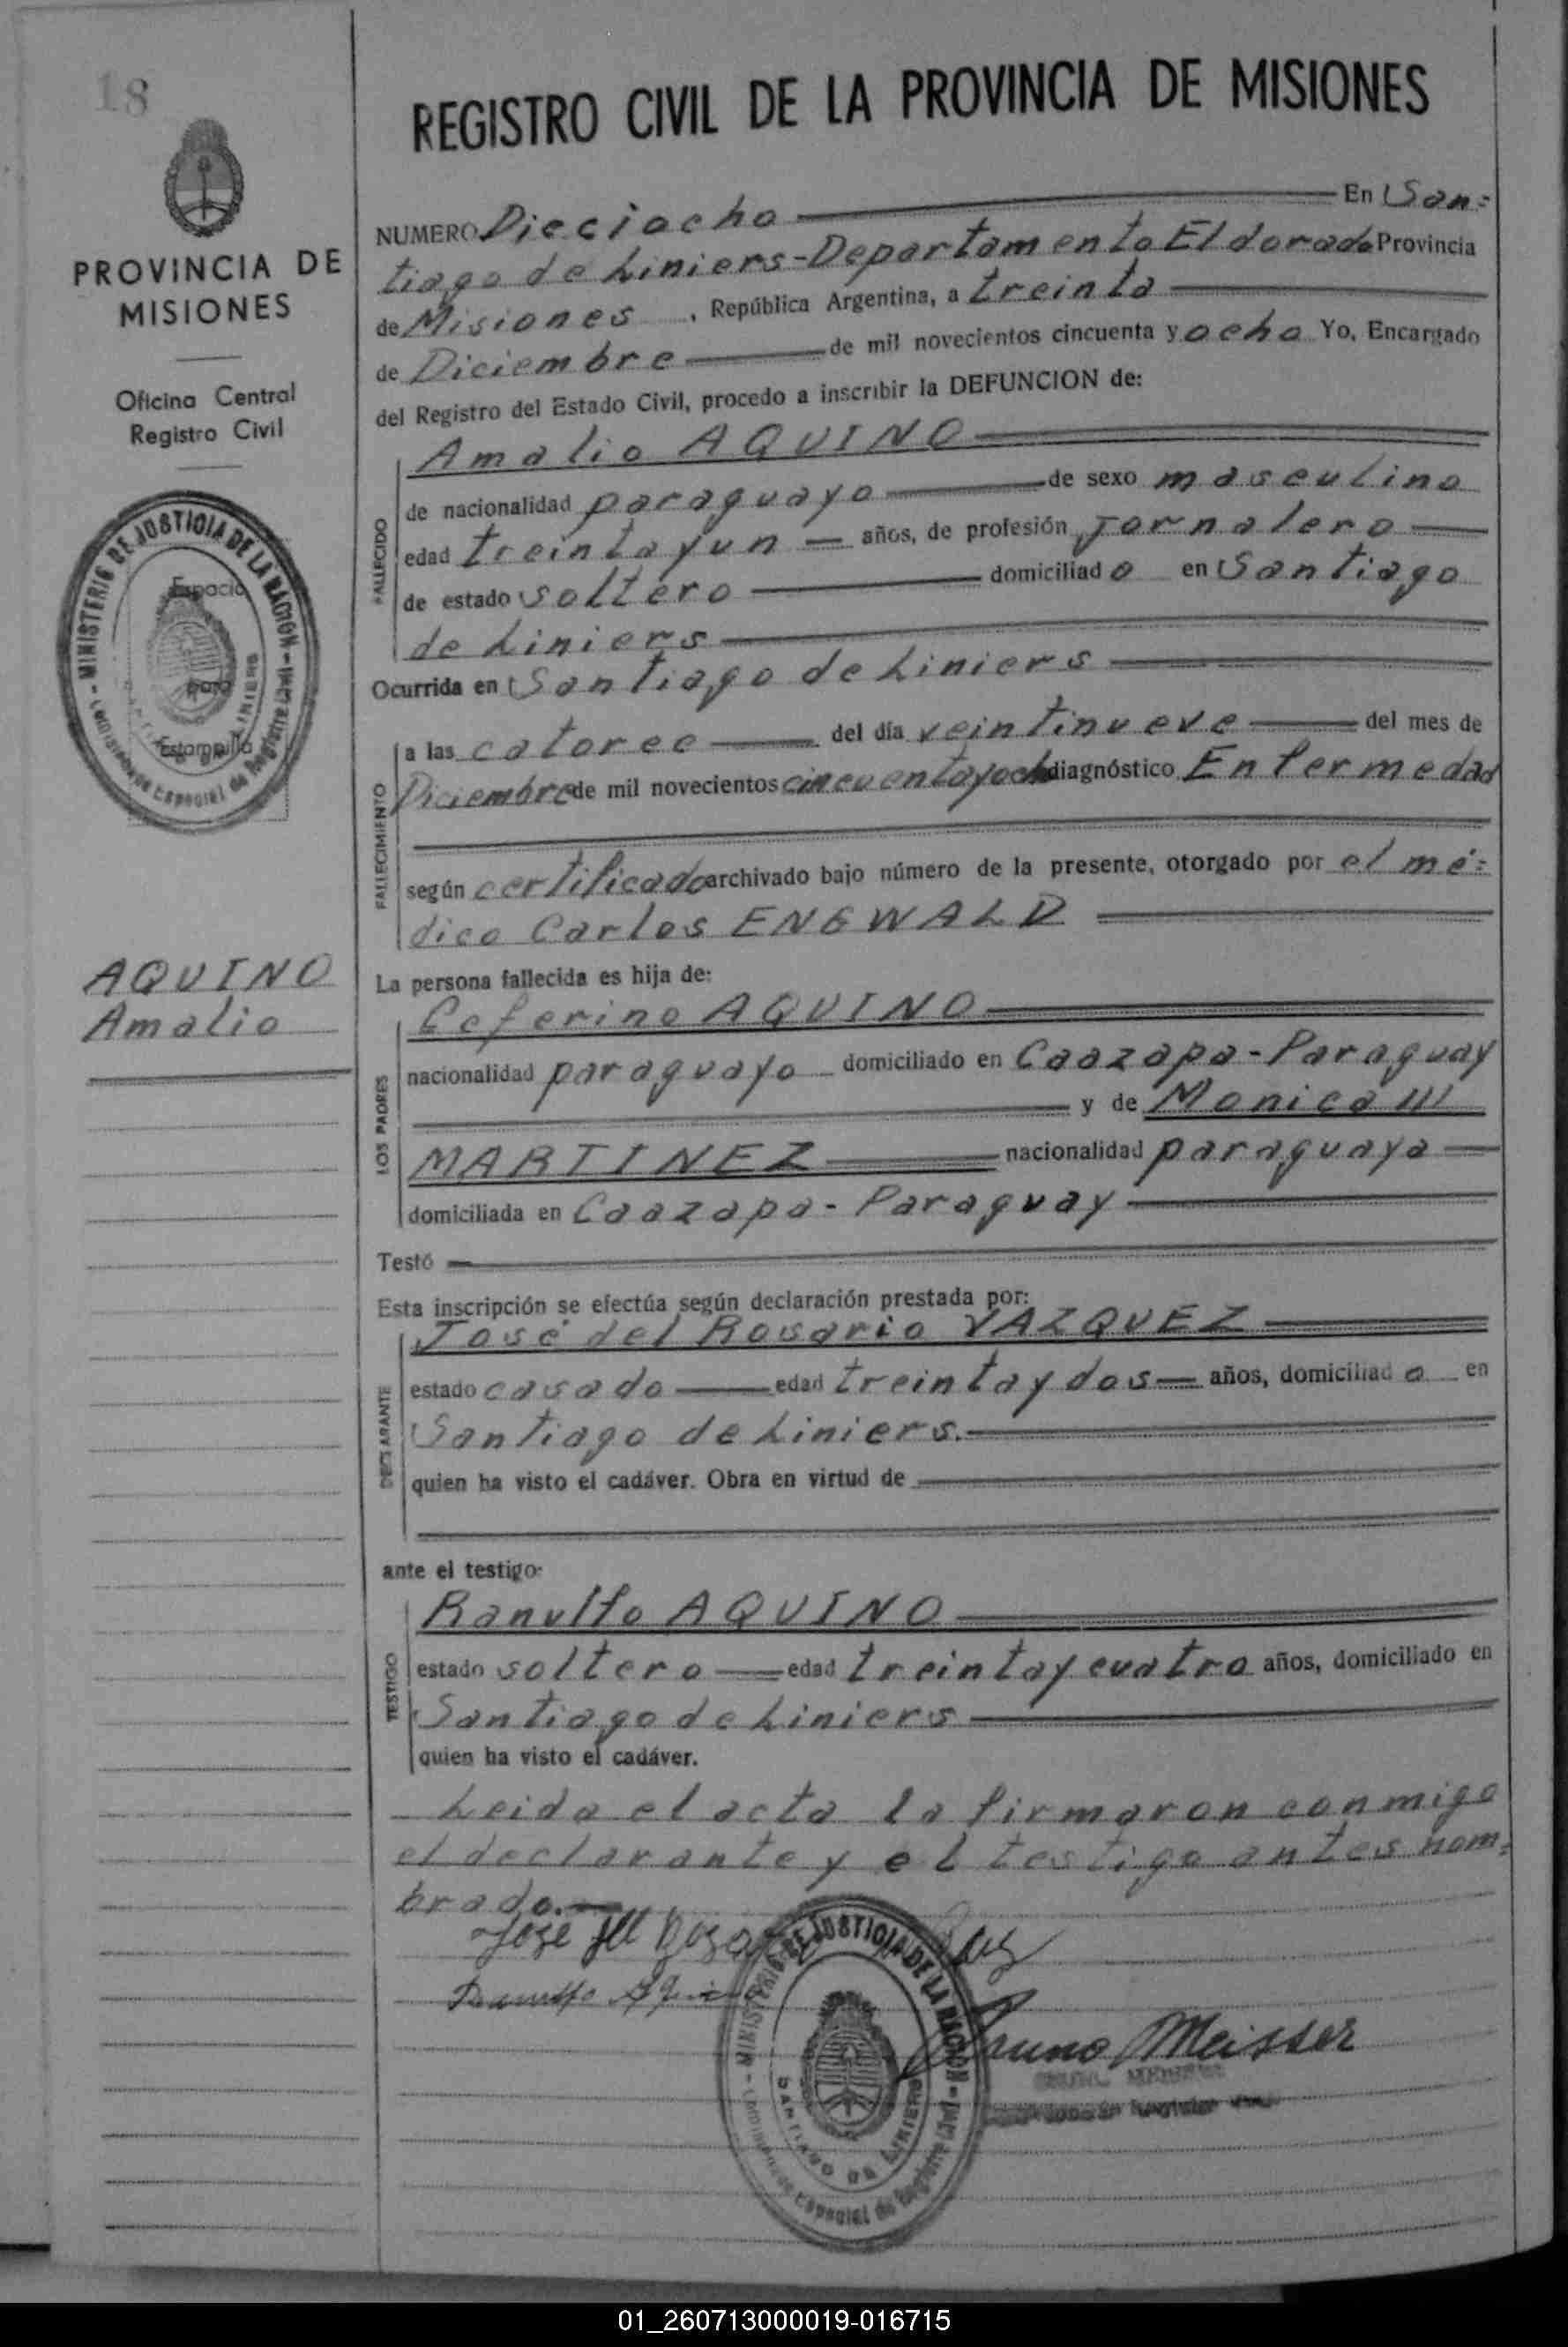 18
PROVINCIA DE
MISIONES
Oficina Central
Registro Civil
MINISTERIO DE JUSTICIA DE LA NACION
Espacio
para
Estampilla
AQUINO
Amalio
REGISTRO CIVIL DE LA PROVINCIA DE MISIONES
NUMERO Dieciocho En San=
tiago de Liniers-Departamento Eldorado Provincia
de Misiones, República Argentina, a treinta
de Diciembre de mil novecientos cincuenta y ocho Yo, Encargado
del Registro del Estado Civil, procedo a inscribir la DEFUNCION de:
FALLECIDO
Amalio AQUINO
de nacionalidad paraguayo de sexo masculino
edad treinta y un años, de profesión jornalero
de estado soltero domiciliado en Santiago
de Liniers
Ocurrida en Santiago de Liniers
FALLECIMIENTO
a las catorce del día veintinueve del mes de
Diciembre de mil novecientos cincuentayocho diagnóstico Enfermedad
según certificado archivado bajo número de la presente, otorgado por el mé=
dico Carlos ENGWALD
La persona fallecida es hija de:
LOS PADRES
Ceferino AQUINO
nacionalidad paraguayo domiciliado en Caazapa-Paraguay
y de Monica
MARTINEZ nacionalidad paraguaya
domiciliada en Caazapa- Paraguay
Testó
Esta inscripción se efectúa según declaración prestada por:
DECLARANTE
José del Rosario VAZQUEZ
estado casado edad treinta y dos años, domiciliado en
Santiago de Liniers.
quien ha visto el cadáver. Obra en virtud de
ante el testigo:
TESTIGO
Ranulfo AQUINO
estado soltero edad treinta y cuatro años, domiciliado en
Santiago de Liniers
quien ha visto el cadáver.
Leida el acta la firmaron conmigo
el declarante y el testigo antes nom=
brado.
Jose del
Ranulfo Aquino
Bruno Meisser
MINISTERIO DE JUSTICIA DE LA NACION
SANTIAGO DE LINIERS
01_260713000019-016715